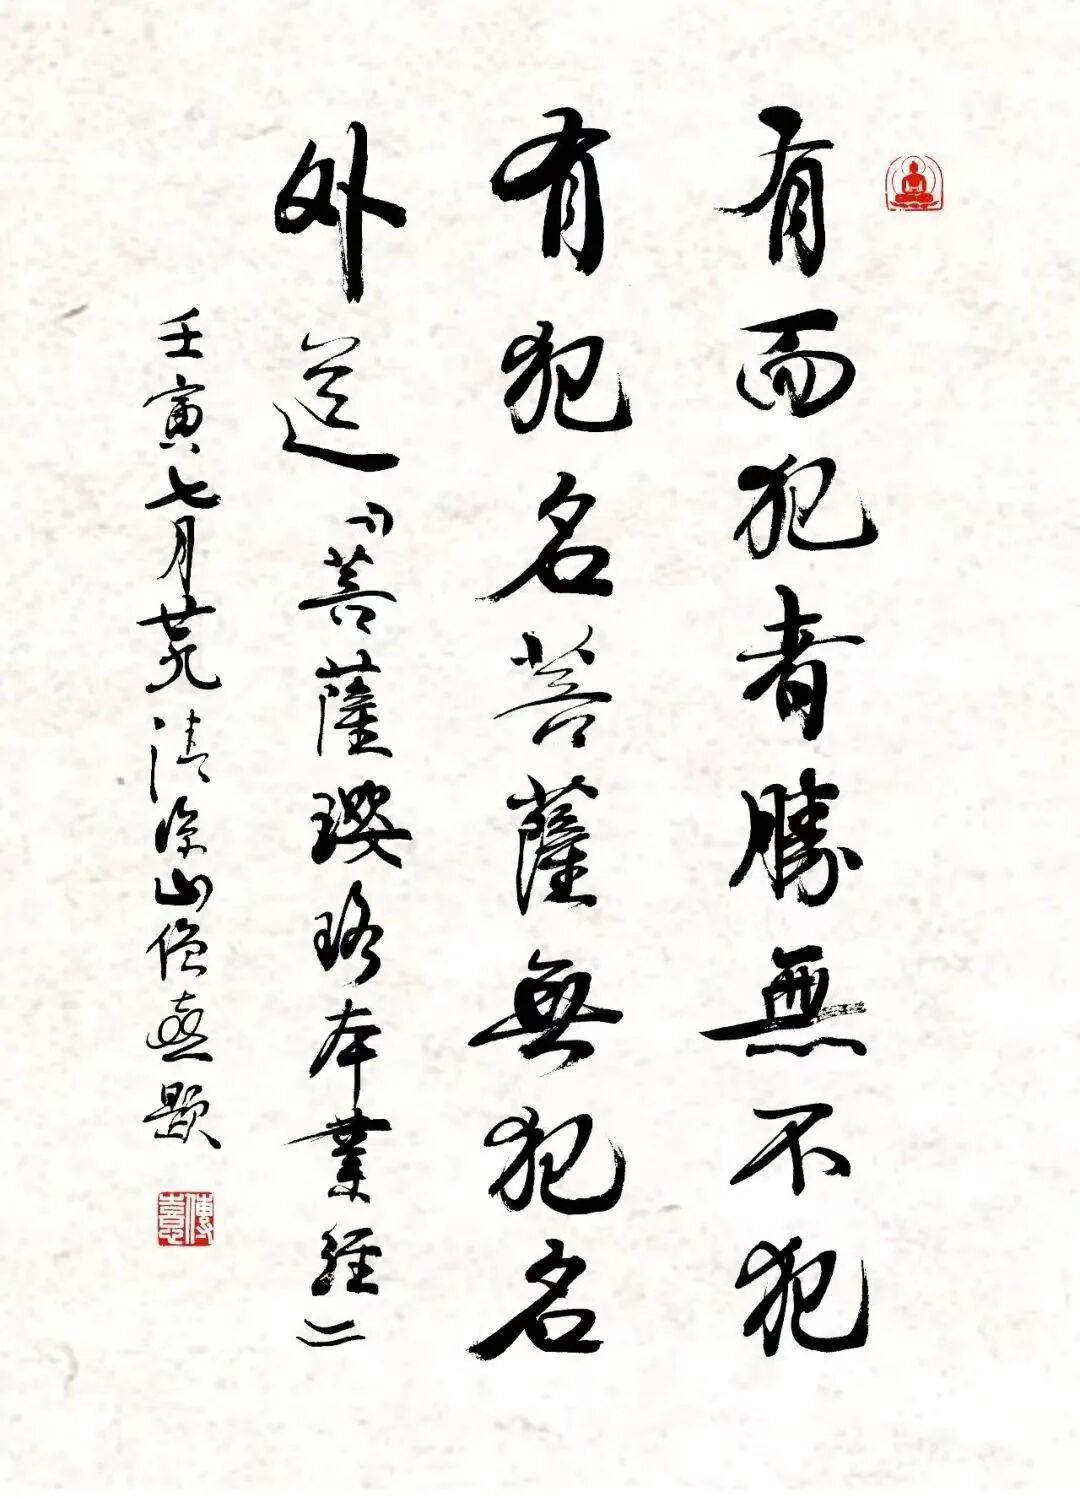 有而犯者勝無不犯
有犯名菩薩無犯名
外道《菩薩瓔珞本業經》
壬寅七月廿九清涼山傳憙題
傳憙